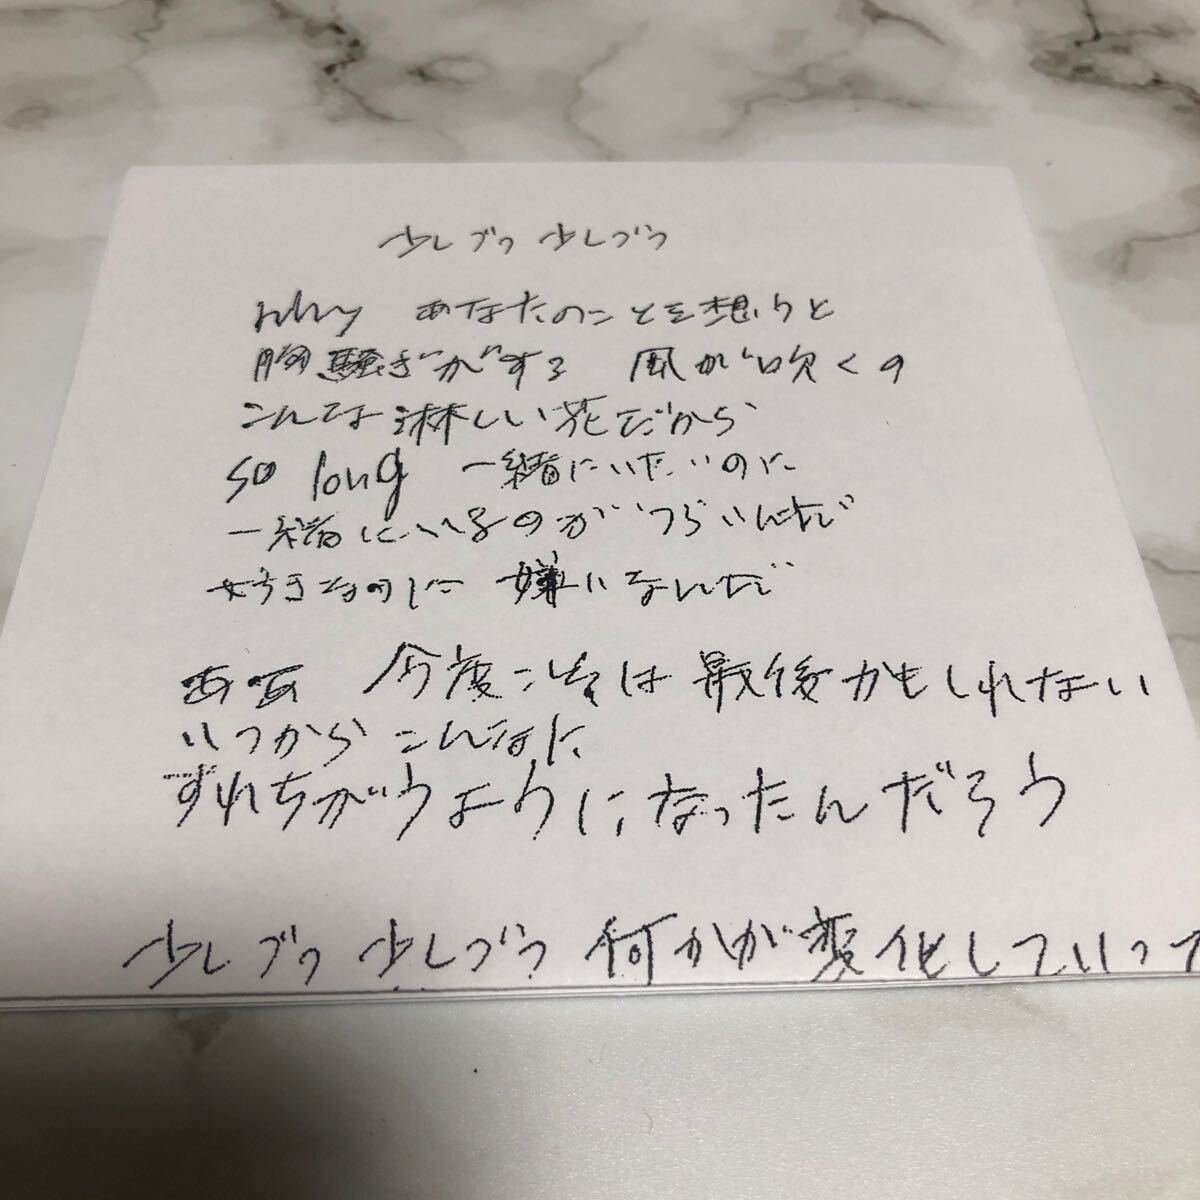 少しづつ 少しづつ
why あなたのことを想うと
胸騒ぎがする 風が吹くの
こんな淋しい花だから
so long 一緒にいたいのに
一緒にいるのがつらいんだ
好きなのに 嫌いなんだ
ああ 今度こそは最後かもしれない
いつからこんなに
すれちがうようになったんだろう
少しづつ 少しづつ 何かが変化していって